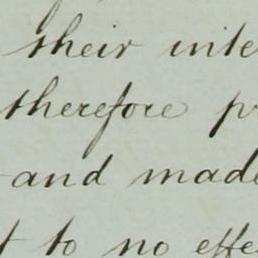 their inte
therefore p
and made
t to no effe